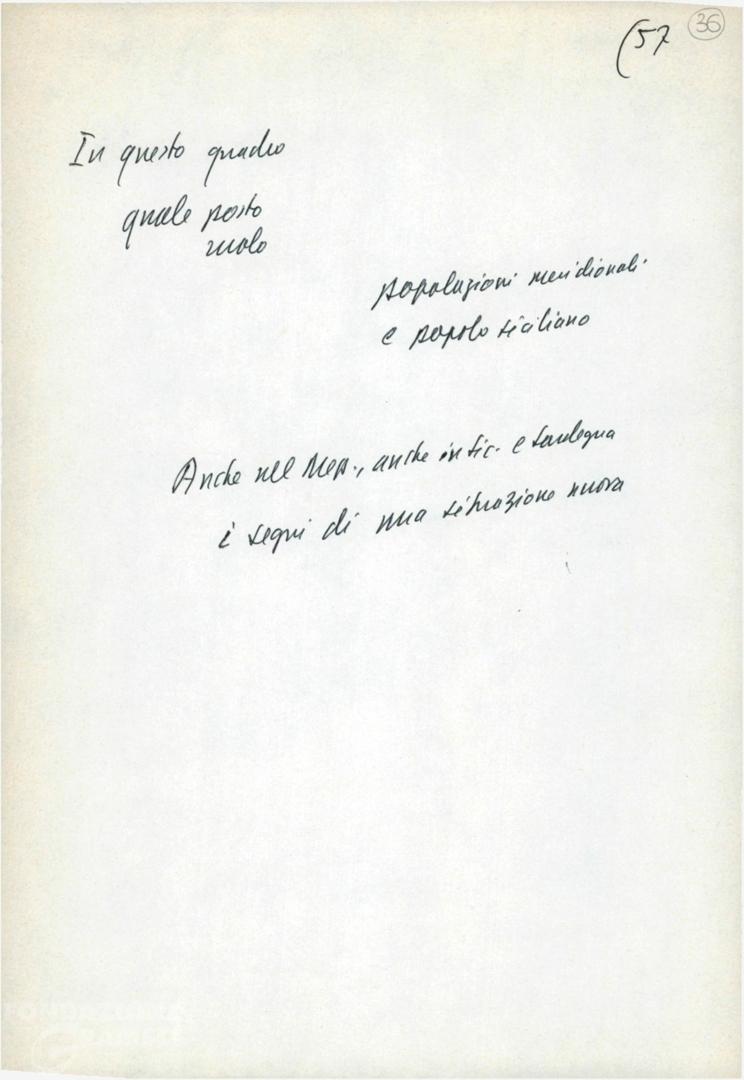 (57 36
In questo quadro
quale posto
ruolo
popolazioni meridionali
e popolo siciliano
Anche nel Mer., anche in Sic. e Sardegna
i segni di una situazione nuova
FONDAZIONE
GRAMSCI